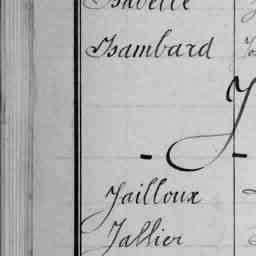 Isambard
- J -
Jailloux
Jallier